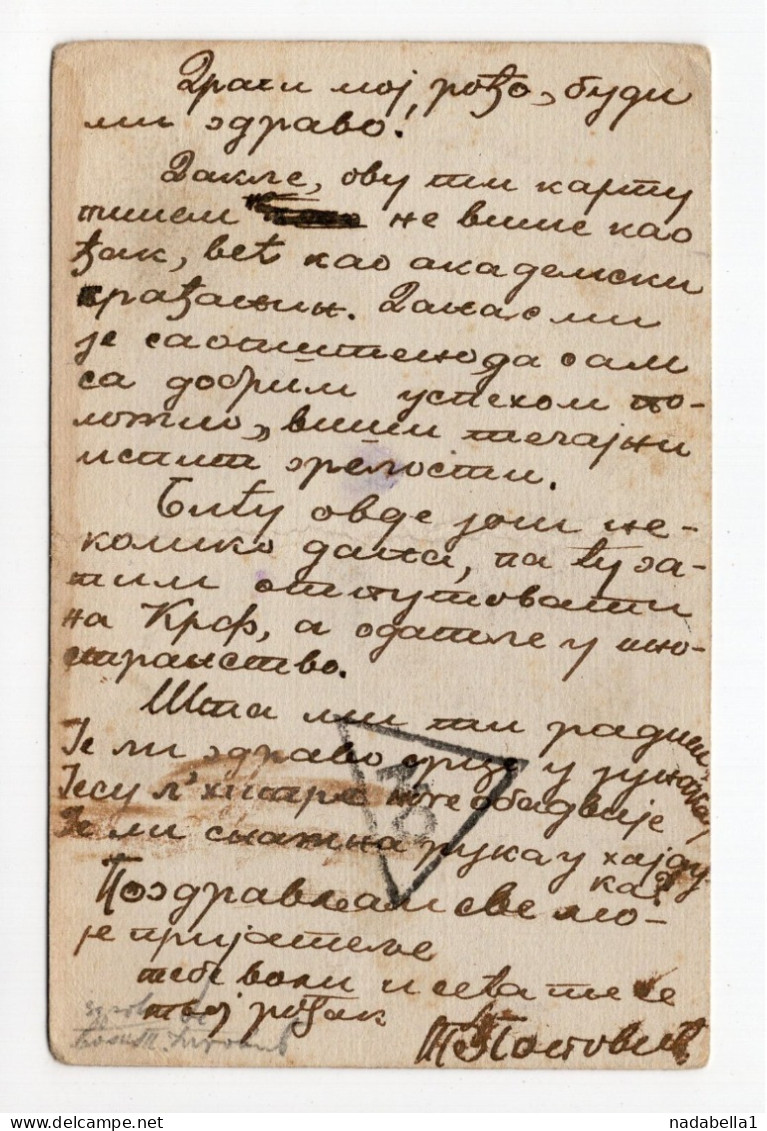 Драги мој рођо, буди
ми здраво!
Дакле, ову ти карту
пишем не више као
ђак, већ као академски
грађанин. Данас ми
је саопштено да сам
са добрим успехом по-
ложио, виши течајни
испит зрелости.
Бићу овде још не-
колико дана, па ћу за-
тим отпутовати
на Крф, а одатле у ино-
странство.
Шта ми ти радиш,
Је ли здраво срце у јунака,
Јесу л' хитре ноге обадвије
Је ли снажна рука у хајду-
ка?
Поздрављам све мо-
је пријатеље
тебе воли и сећа те се
твој рођак
Поповић